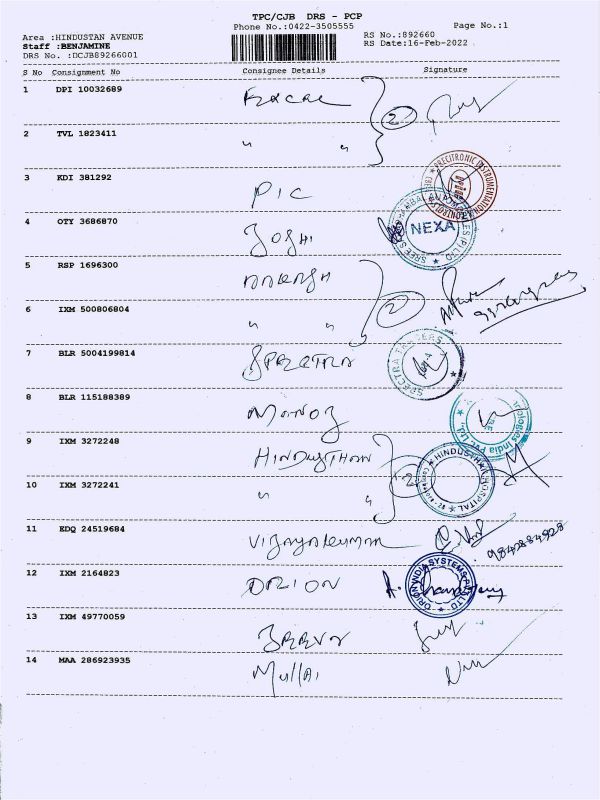 TPC/CJB DRS - PCP
Phone No.:0422-3505555 Page No.:1
Area :HINDUSTAN AVENUE RS No.:892660
Staff :BENJAMINE RS Date:16-Feb-2022
DRS No. :DCJB89266001
S No Consignment No Consignee Details Signature
1 DPI 10032689 2
2 TVL 1823411 " "
3 KDI 381292 PIC
PRECITRONIC INSTRUMENTATION
4 OTY 3686870 JOSHI
NEXA
5 RSP 1696300
6 IXM 500806804 " " 2
7 BLR 5004199814 SPECTRA
SPECTRA
8 BLR 115188389 MANOJ
India Pvt. Ltd.
9 IXM 3272248 HINDUSTHAN
HINDUSTHAN HOSPITAL
10 IXM 3272241 " " 2
11 EDQ 24519684 Vijayakumar
9842884928
12 IXM 2164823 ORION
ORION INDIA SYSTEMS PVT LTD
13 IXM 49770059
14 MAA 286923935 Mullai